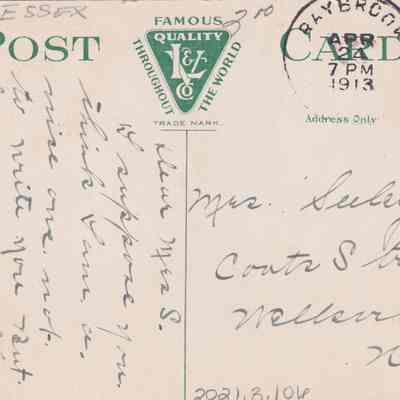 ESSEX
POST CARD
FAMOUS
QUALITY
L & Co
THROUGHOUT
THE WORLD
TRADE MARK
3 00
BAYBROOK
APR
24
7 PM
1913
Address Only
Dear Mrs S.
I suppose you
think I am a
nice one not
to write you
Mrs.
Coats S
2021.3.106